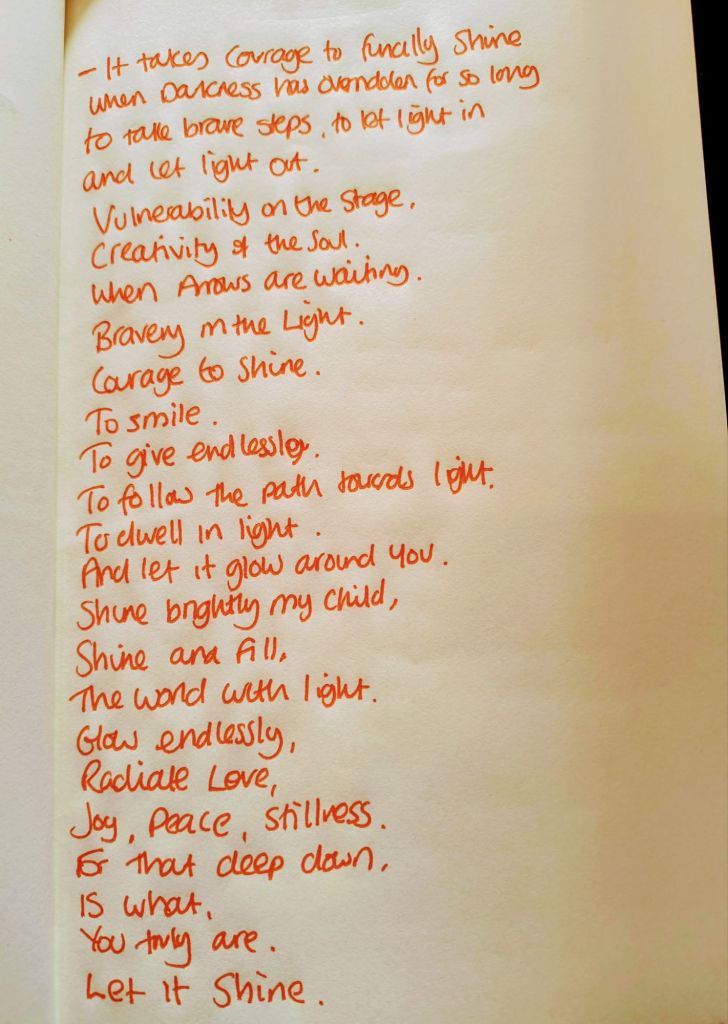 - It takes Courage to finally Shine
when Darkness has overridden for so long
to take brave steps, to let light in
and let light out.
Vulnerability on the Stage,
Creativity of the Soul.
When Arrows are waiting.
Bravery in the Light.
Courage to Shine.
To smile.
To give endlessley.
To follow the path towards light.
To dwell in light.
And let it glow around you.
Shine brightly my Child,
Shine and fill,
The world with light.
Glow endlessly,
Radiate Love,
Joy, Peace, Stillness.
For that deep down,
IS what,
You truly are.
Let it Shine.